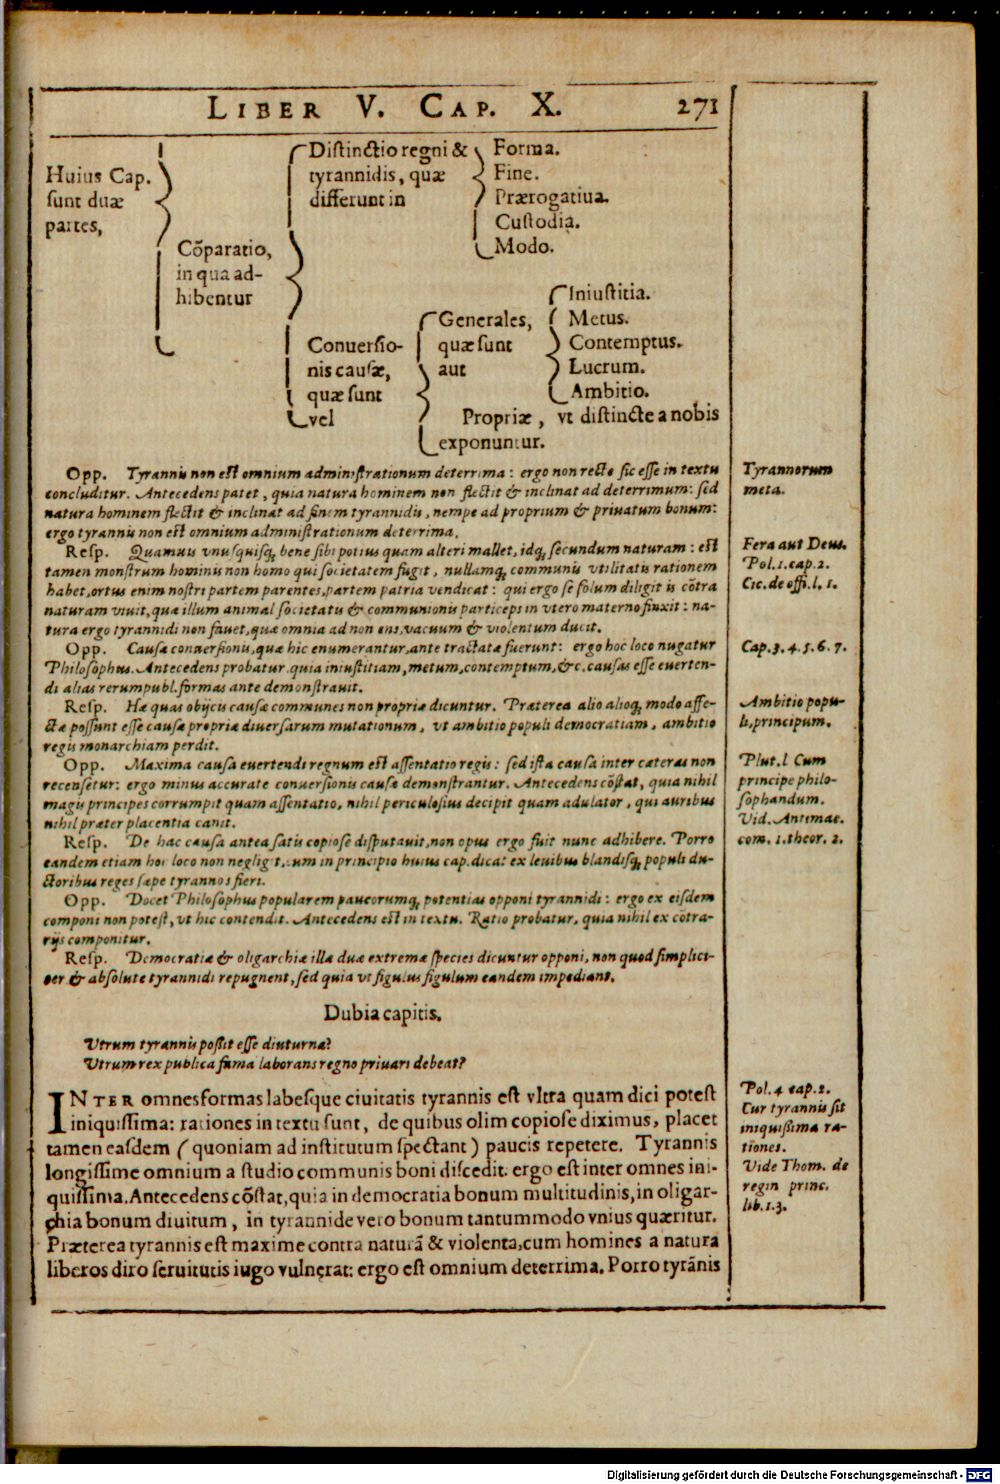 LIBER V. CAP. X. 271
Huius Cap.
sunt duæ
partes,
Cōparatio,
in qua ad-
hibentur
Distinctio regni &
tyrannidis, quæ
differunt in
Forma.
Fine.
Prærogatiua.
Custodia.
Modo.
Conuersio-
nis causæ,
quæ sunt
vel
Generales,
quæ sunt
aut
Iniustitia.
Metus.
Contemptus.
Lucrum.
Ambitio.
Propriæ, vt distincte a nobis
exponuntur.
Opp. Tyrannis non est omnium administrationum deterrima: ergo non recte sic esse in textu
concluditur. Antecedens patet, quia natura hominem non flectit & inclinat ad deterrimum: sed
natura hominem flectit & inclinat ad finem tyrannidis, nempe ad proprium & priuatum bonum:
ergo tyrannis non est omnium administrationum deterrima.
Resp. Quamuis vnusquisq; bene sibi potius quam alteri mallet, idq; secundum naturam: est
tamen monstrum hominis non homo qui societatem fugit, nullamq; communis vtilitatis rationem
habet, ortus enim nostri partem parentes, partem patria vendicat: qui ergo se solum diligit is cōtra
naturam viuit, quæ illum animal societatis & communionis particeps in vtero materno finxit: na-
tura ergo tyrannidi non fauet, quæ omnia ad non ens, vacuum & violentum ducit.
Opp. Causæ conuersionis, quæ hic enumerantur, ante tractatæ fuerunt: ergo hoc loco nugatur
Philosophus. Antecedens probatur. quia iniustitiam, metum, contemptum, &c. causas esse euerten-
di alias rerumpubl. formas ante demonstrauit.
Resp. Hæ quas obijcis causæ communes non propriæ dicuntur. Præterea alio alioq; modo affe-
ctæ possunt esse causæ propriæ diuersarum mutationum, vt ambitio populi democratiam, ambitio
regis monarchiam perdit.
Opp. Maxima causa euertendi regnum est assentatio regis: sed ista causa inter cæteras non
recensetur: ergo minus accurate conuersionis causæ demonstrantur. Antecedens cōstat, quia nihil
magis principes corrumpit quam assentatio, nihil periculosius decipit quam adulator, qui auribus
nihil præter placentia canit.
Resp. De hac causa antea satis copiose disputauit, non opus ergo fuit nunc adhibere. Porro
eandem etiam hoc loco non negligit, cum in principio huius cap. dicat ex leuibus blandisq; populi du-
ctoribus reges sæpe tyrannos fieri.
Opp. Docet Philosophus popularem paucorumq; potentias opponi tyrannidi: ergo ex eisdem
componi non potest, vt hic contendit. Antecedens est in textu. Ratio probatur, quia nihil ex cōtra-
rijs componitur.
Resp. Democratiæ & oligarchiæ illæ duæ extremæ species dicuntur opponi, non quod simplici-
ter & absolute tyrannidi repugnent, sed quia vt figulus figulum eandem impediant.
Dubia capitis.
Vtrum tyrannis possit esse diuturna?
Vtrum rex publica fama laborans regno priuari debeat?
INTER omnes formas labesque ciuitatis tyrannis est vltra quam dici potest
iniquissima: rationes in textu sunt, de quibus olim copiose diximus, placet
tamen easdem (quoniam ad institutum spectant) paucis repetere. Tyrannis
longissime omnium a studio communis boni discedit: ergo est inter omnes ini-
quissima. Antecedens cōstat, quia in democratia bonum multitudinis, in oligar-
chia bonum diuitum, in tyrannide vero bonum tantummodo vnius quæritur.
Præterea tyrannis est maxime contra naturā & violenta, cum homines a natura
liberos diro seruitutis iugo vulnerat: ergo est omnium deterrima. Porro tyrānis
Tyrannorum
meta.
Fera aut Deus.
Pol. 1. cap. 2.
Cic. de offi. l. 1.
Cap. 3. 4. 5. 6. 7.
Ambitio popu-
li, principum.
Plut. l. Cum
principe philo-
sophandum.
Vid. Antimac.
com. 1. theor. 2.
Pol. 4 cap. 2.
Cur tyrannis sit
iniquißima ra-
tiones.
Vide Thom. de
regin princ.
lib. 1. 3.
Digitalisierung gefördert durch die Deutsche Forschungsgemeinschaft - DFG